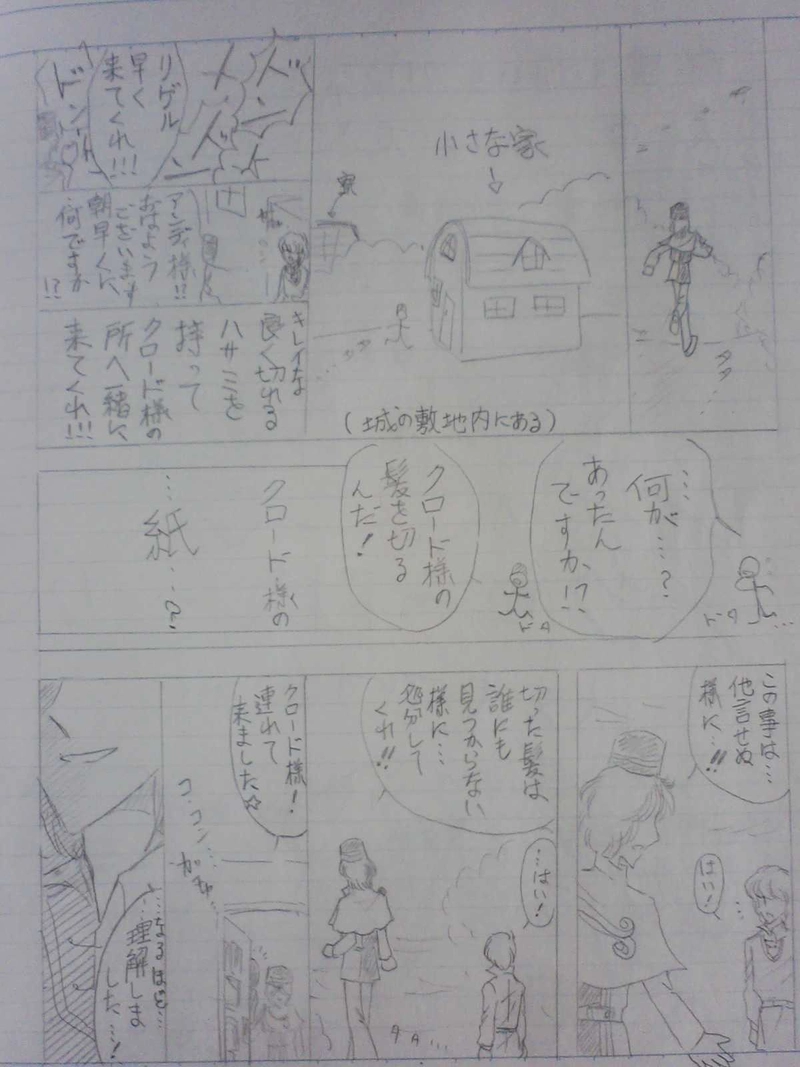 タタ…
小さな家
家
タタ
…
(城の敷地内にある)
ドンドン
リゲル
早く
来てくれ!!!
アンディ様!!
おはよう
ございます
朝早くに、
何ですか
!?
キレイな
良く切れる
ハサミを
持って
クロード様の
所へ一緒に、
来てくれ!!!
…何が…?
あったん
ですか!?
ドタ…
クロード様の
髪を切る
んだ!
ドタ
クロード様の
…紙…?
この事は…
他言せぬ
様に…!!
はい!
…
切った髪は、
誰にも
見つからない
様に…
処分して
くれ!!
…はい!
タタ…
クロード様!
連れて
来ました☆
コ、コン…
ガチャ…
…なるほど…
理解しま
した…!